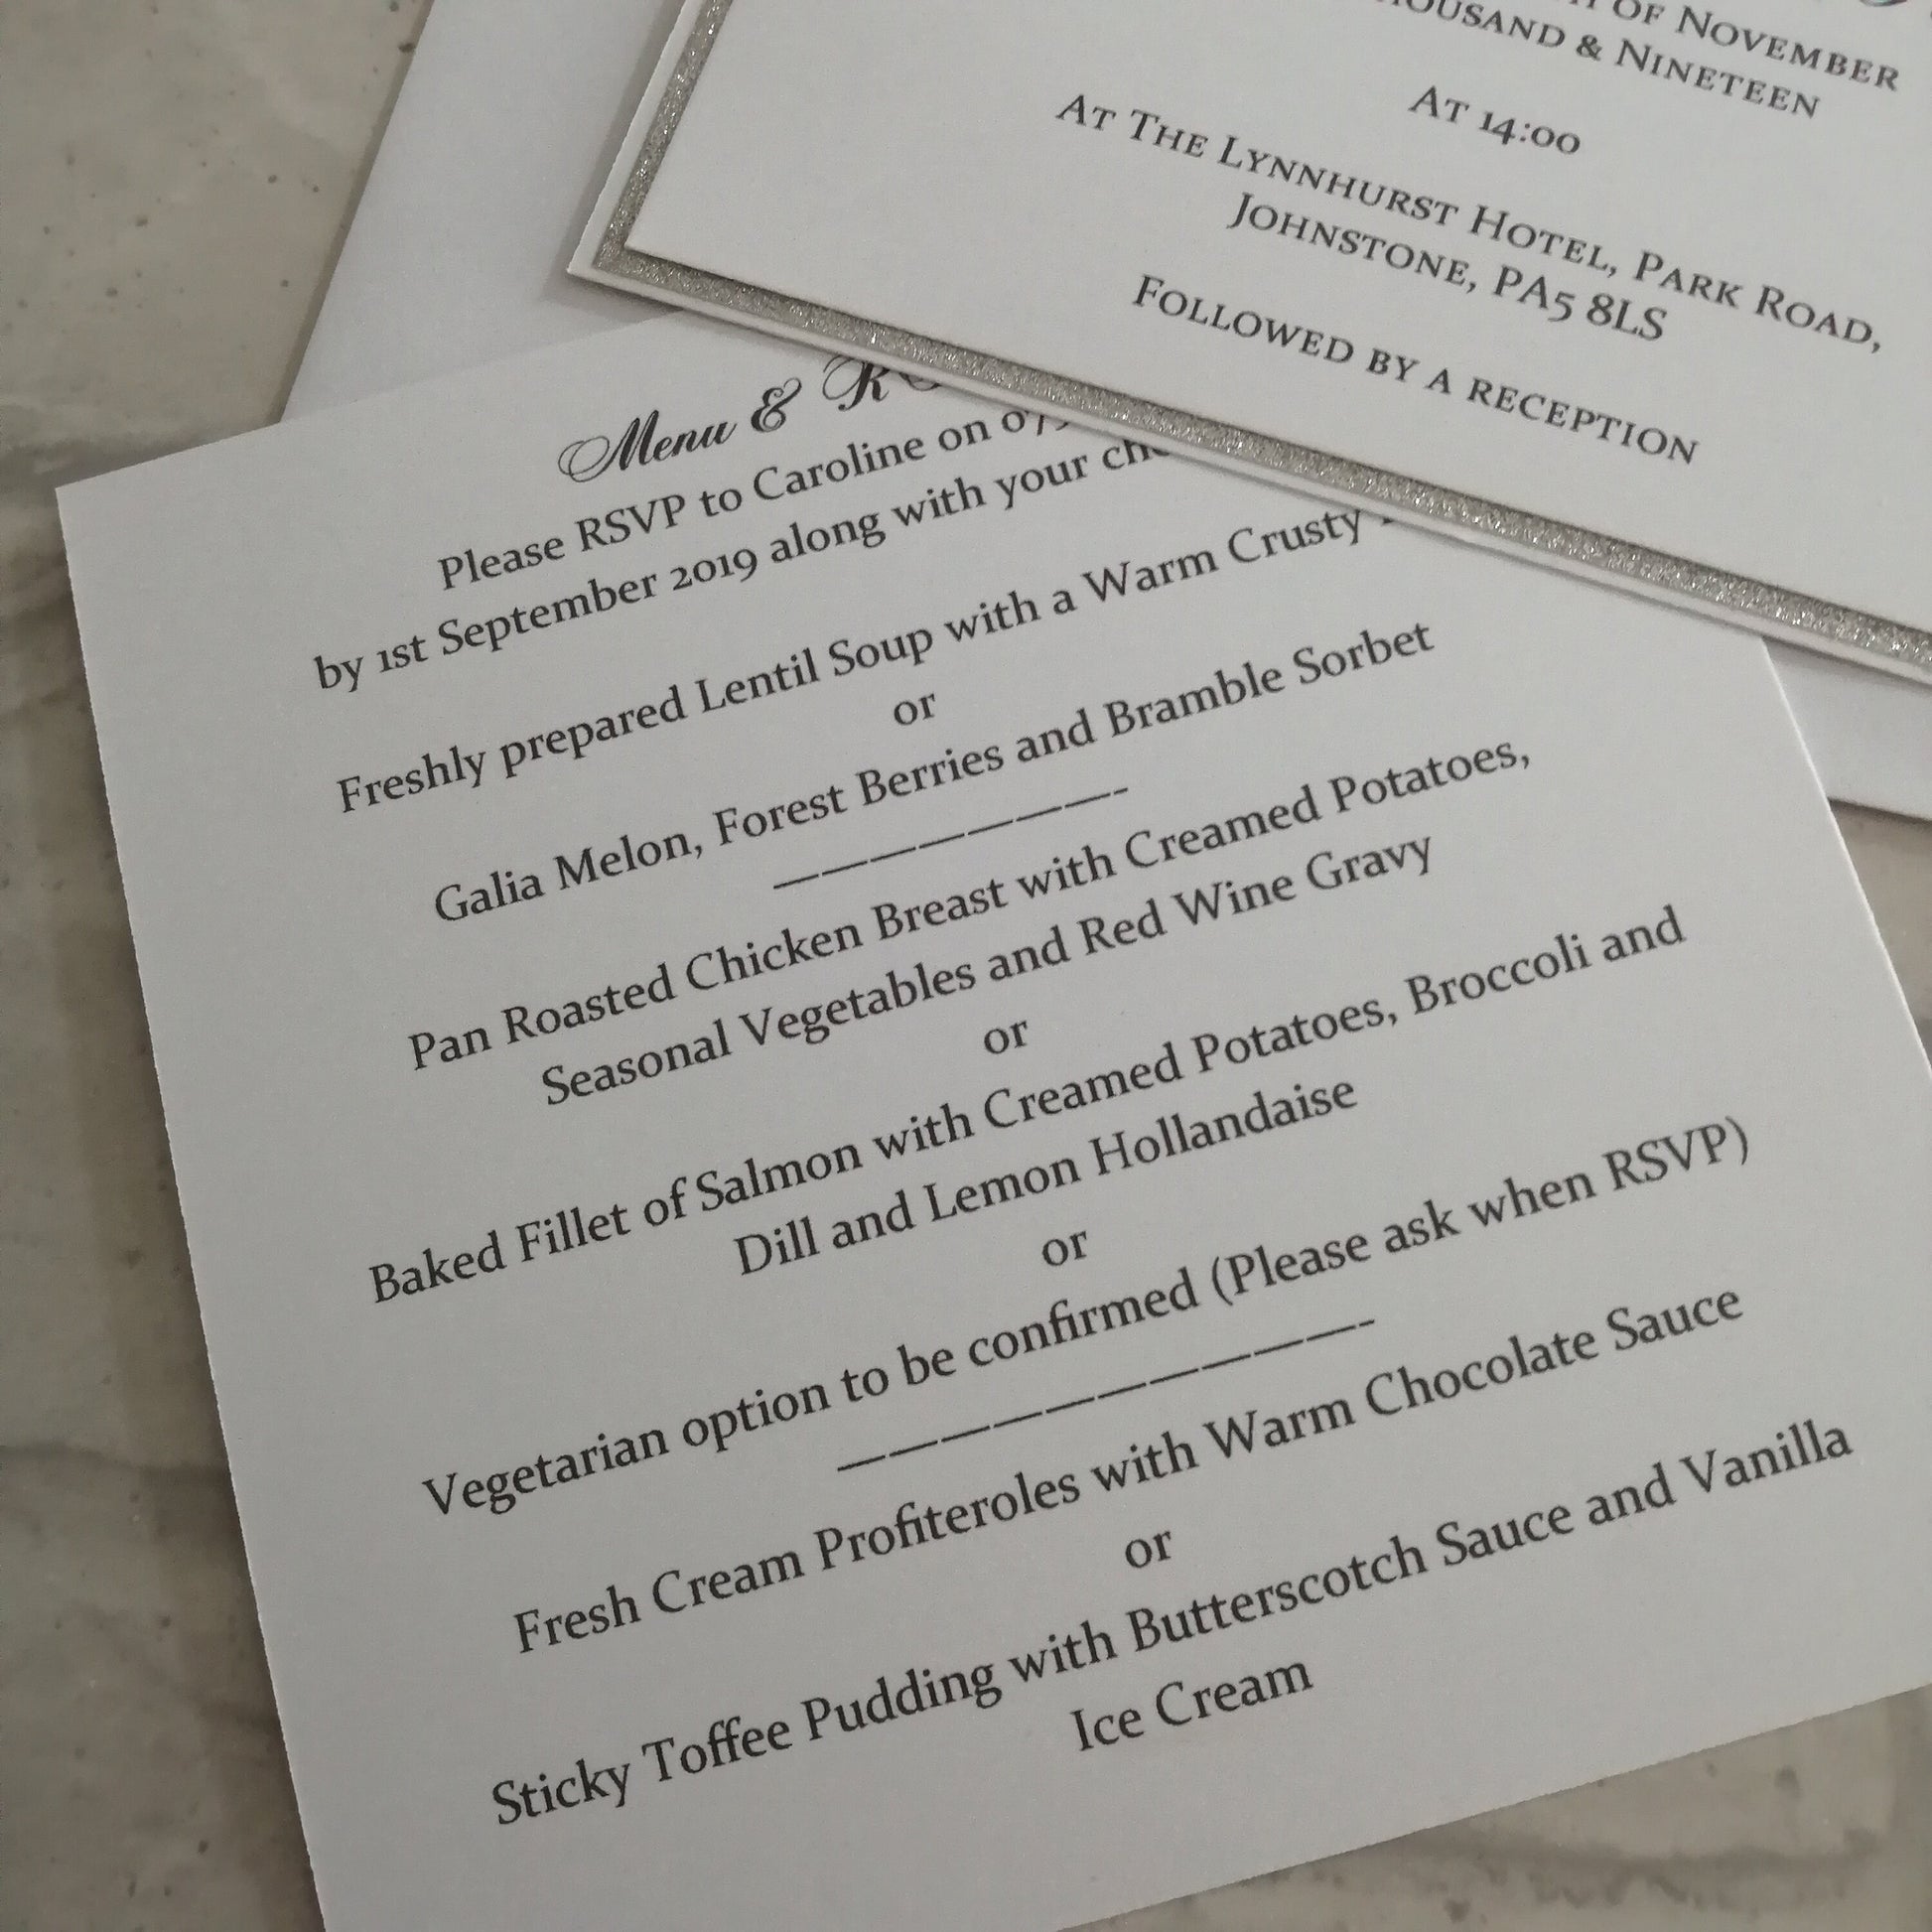 of November
& Nineteen
At 14:00
At The Lynnhurst Hotel, Park Road,
Johnstone, PA5 8LS
Followed by a reception
Menu &
Please RSVP to Caroline on
by 1st September 2019 along with your
Freshly prepared Lentil Soup with a Warm Crusty
or
Galia Melon, Forest Berries and Bramble Sorbet
Pan Roasted Chicken Breast with Creamed Potatoes,
Seasonal Vegetables and Red Wine Gravy
or
Baked Fillet of Salmon with Creamed Potatoes, Broccoli and
Dill and Lemon Hollandaise
or
Vegetarian option to be confirmed (Please ask when RSVP)
Fresh Cream Profiteroles with Warm Chocolate Sauce
or
Sticky Toffee Pudding with Butterscotch Sauce and Vanilla
Ice Cream